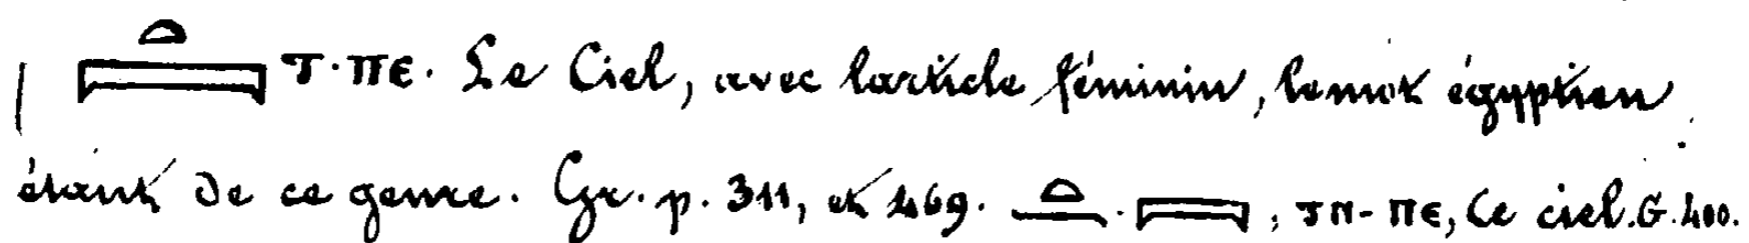 𓏏𓇯 Ⲧ·ⲠⲈ. Le Ciel, avec l'article féminin, le mot égyptien
étant de ce genre. Gr. p. 311, et 469. 𓏏𓈖·𓇯, ⲦⲚ-ⲠⲈ, Ce ciel. G. 400.